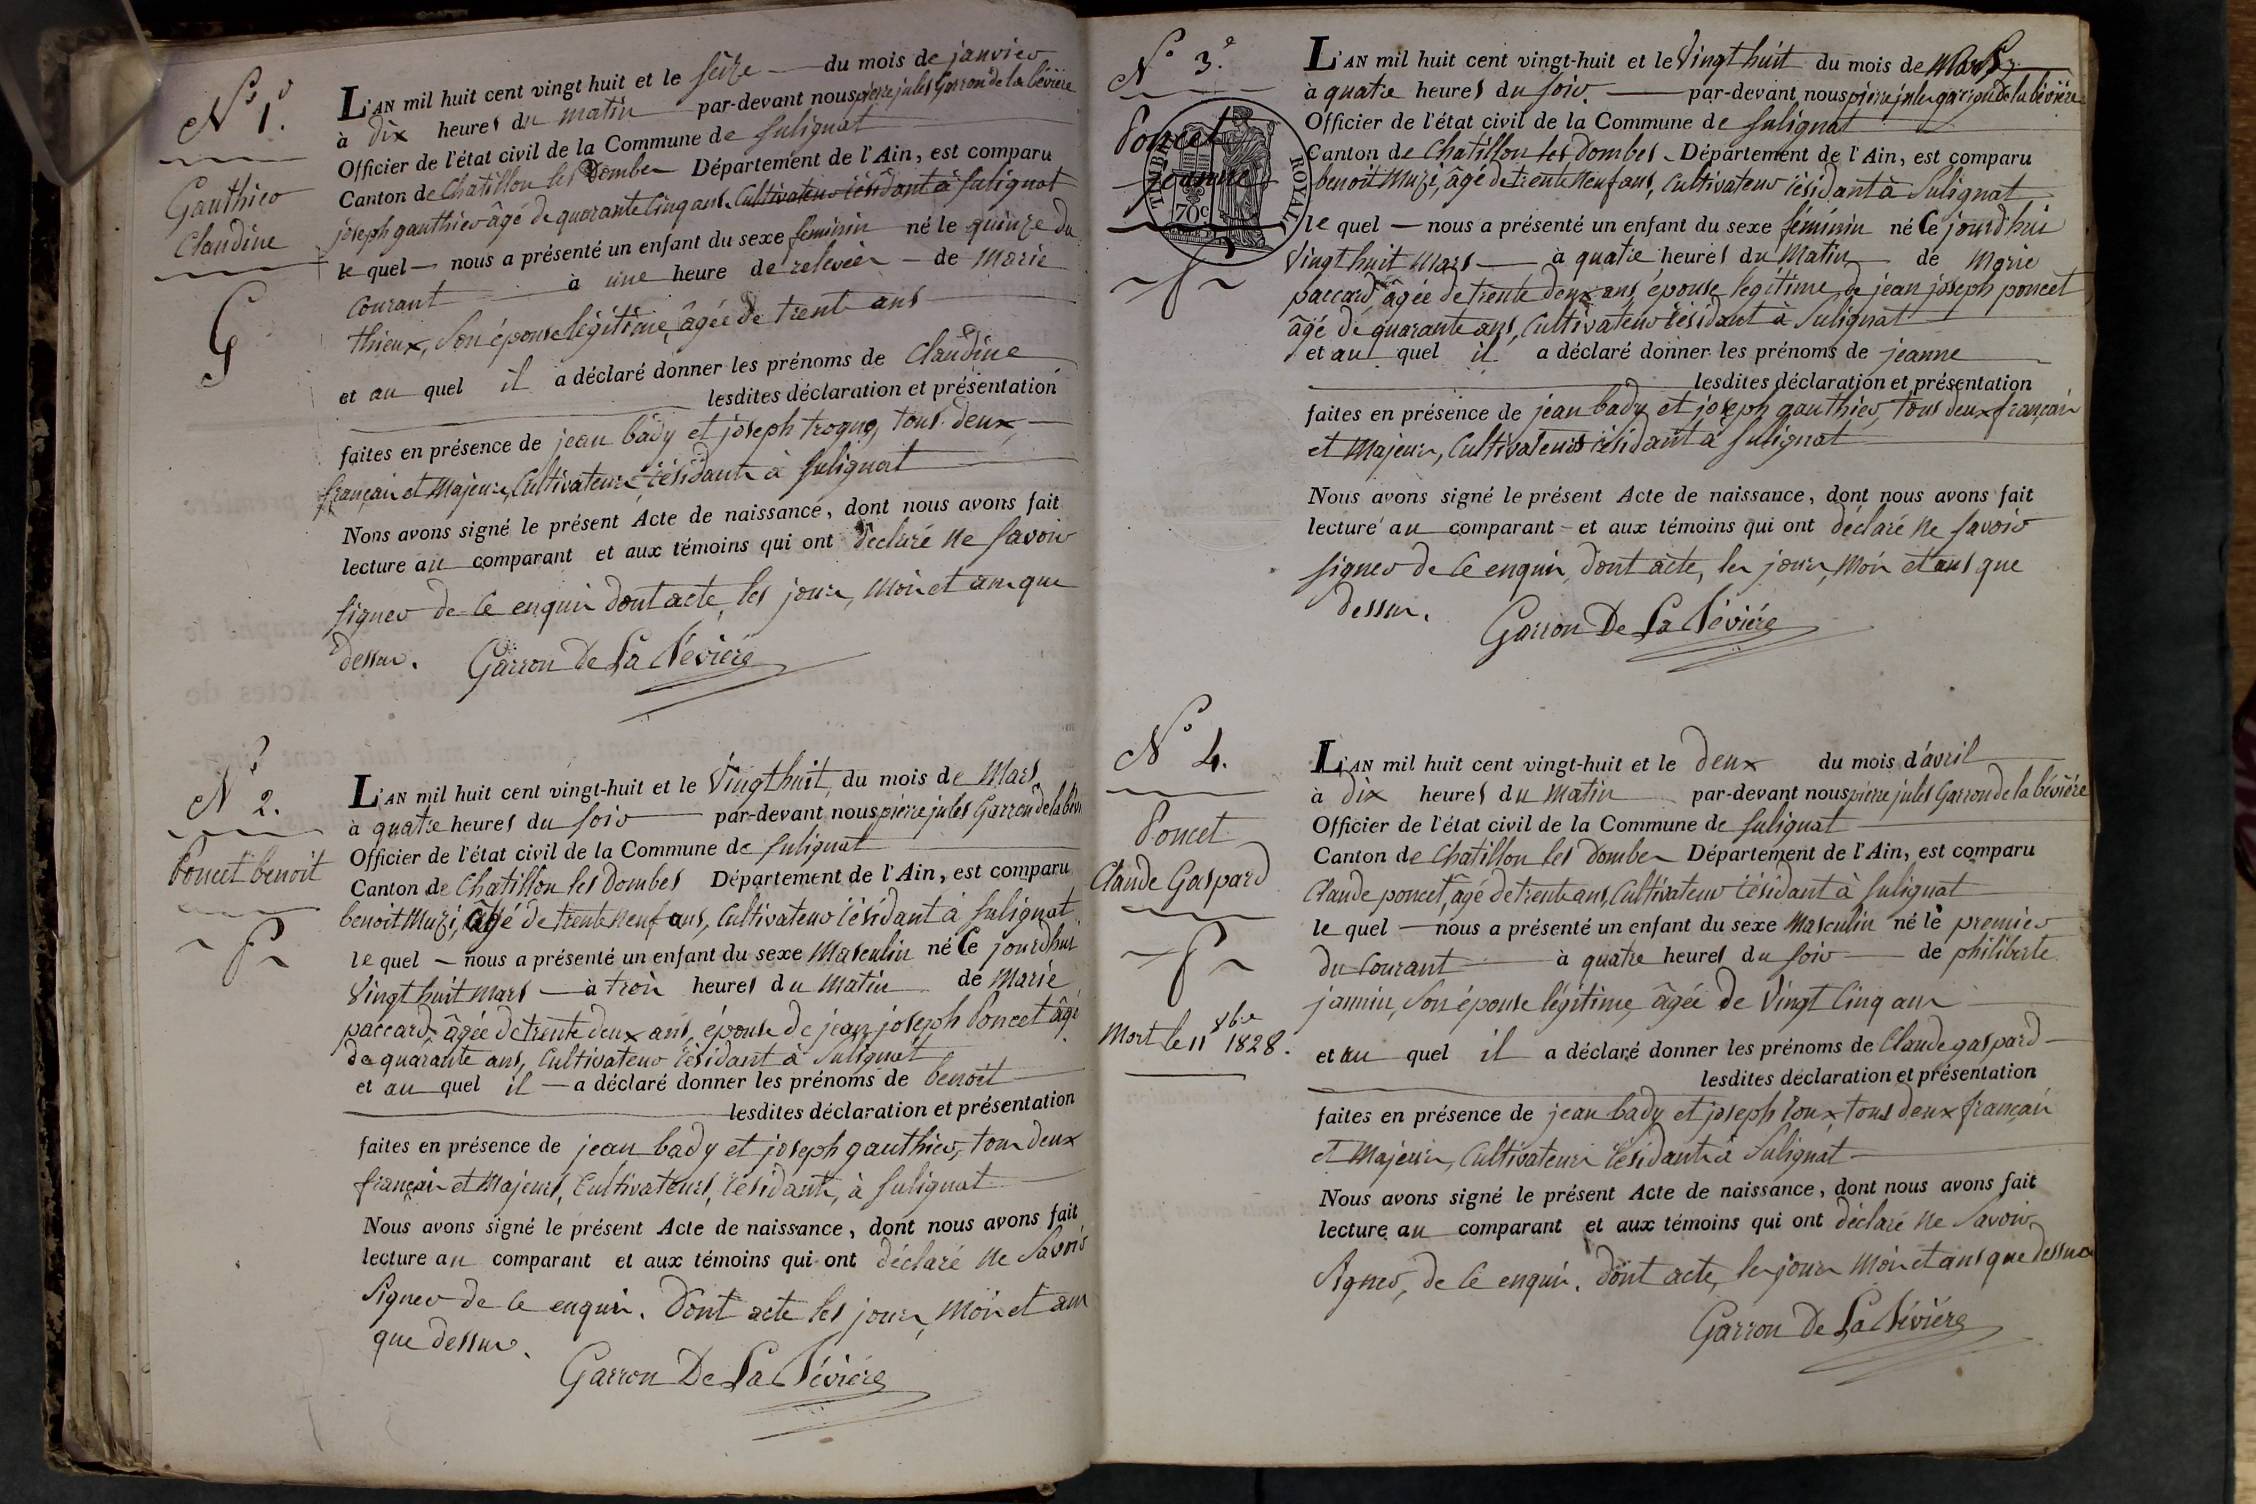 N° 1.er
Gauthier
Claudine
G
L'AN mil huit cent vingt huit et le seize du mois de janvier
à dix heures du matin par-devant nous pierre jules Garron de la bévière
Officier de l'état civil de la Commune de Sulignat
Canton de Chatillon les Dombes Département de l'Ain, est comparu
joseph gauthier âgé de quarante cinq ans, Cultivateur résidant à Sulignat
le quel nous a présenté un enfant du sexe féminin né le quinze du
courant à une heure de relevée de Marie
thieux, son épouse légitime, âgée de trente ans
et au quel il a déclaré donner les prénoms de Claudine
lesdites déclaration et présentation
faites en présence de jean bady et joseph trogny, tous deux,
français et Majeurs, Cultivateurs résidants à Sulignat
Nous avons signé le présent Acte de naissance, dont nous avons fait
lecture au comparant et aux témoins qui ont déclaré ne savoir
signer de ce enquis dont acte, les jours, Mois et ans que
dessus. Garron De La Bévière
N° 2.
Poncet benoit
P
L'AN mil huit cent vingt-huit et le Vingt huit du mois de Mars
à quatre heures du soir par-devant nous pierre jules Garron de la bévière
Officier de l'état civil de la Commune de Sulignat
Canton de Chatillon les dombes Département de l'Ain, est comparu
benoit Muzi, âgé de trente neuf ans, Cultivateur résidant à Sulignat
le quel nous a présenté un enfant du sexe Masculin né Ce jourdhui
Vingt huit Mars à trois heures du Matin de Marie
paccard, âgée de trente deux ans, épouse de jean joseph Poncet âgé
de quarante ans, Cultivateur résidant à Sulignat
et au quel il a déclaré donner les prénoms de benoit
lesdites déclaration et présentation
faites en présence de jean bady et joseph gauthier, tous deux
français et Majeurs, Cultivateurs, résidants, à Sulignat
Nous avons signé le présent Acte de naissance, dont nous avons fait
lecture au comparant et aux témoins qui ont déclaré ne Savoir
Signer de ce enquis. Dont acte les jours, Mois et ans
que dessus.
Garron De La Bévière
N° 3.e
Poncet
jeanne
TIMBRE ROYAL
70c
P
L'AN mil huit cent vingt-huit et le Vingt huit du mois de Mars
à quatre heures du soir. par-devant nous pierre jules garron de la bévière
Officier de l'état civil de la Commune de Sulignat
Canton de Chatillon les Dombes Département de l'Ain, est comparu
benoit Muzi, âgé de trente neuf ans, Cultivateur résidant à Sulignat
le quel nous a présenté un enfant du sexe féminin né Ce jourd'hui
Vingt huit Mars à quatre heures du Matin de Marie
paccard âgée de trente deux ans, épouse légitime de jean joseph poncet
âgé de quarante ans, Cultivateur résidant à Sulignat
et au quel il a déclaré donner les prénoms de jeanne
lesdites déclaration et présentation
faites en présence de jean bady et joseph gauthier, tous deux français
et Majeurs, Cultivateurs résidant à Sulignat
Nous avons signé le présent Acte de naissance, dont nous avons fait
lecture au comparant et aux témoins qui ont déclaré ne Savoir
signer de ce enquis, dont acte, les jours, Mois et ans que
dessus.
Garron De La Bévière
N° 4.
Poncet
Claude Gaspard
P
Mort le 11 8bre 1828.
L'AN mil huit cent vingt-huit et le deux du mois d'avril
à dix heures du Matin par-devant nous pierre jules Garron de la bévière
Officier de l'état civil de la Commune de Sulignat
Canton de Chatillon les Dombes Département de l'Ain, est comparu
Claude poncet, âgé de trente ans, Cultivateur résidant à Sulignat
le quel nous a présenté un enfant du sexe Masculin né le premier
du Courant à quatre heures du soir de philiberte
jannin, son épouse légitime, âgée de Vingt Cinq ans
et au quel il a déclaré donner les prénoms de Claude gaspard
lesdites déclaration et présentation
faites en présence de jean bady et joseph roux tous deux français
et Majeurs, Cultivateurs résidants à Sulignat
Nous avons signé le présent Acte de naissance, dont nous avons fait
lecture au comparant et aux témoins qui ont déclaré ne Savoir
Signer, de Ce enquis. dont acte, les jours Mois et ans que dessus
Garron De La Bévière